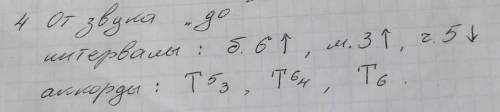 4 От звука „до
интервалы : б. 6 ↑ , м. 3 ↑ , ч. 5 ↓
аккорды : Т⁵₃ , Т⁶₄ , Т₆ .